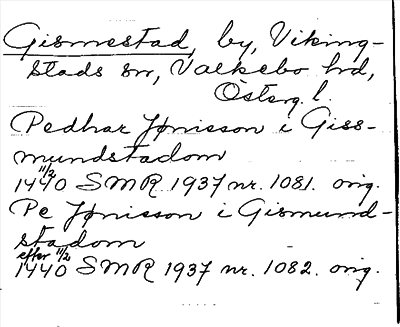 Gismestad, by, Viking-
stads sn, Valkebo hd,
Österg. l.
Pedhar Jønisson i Giss-
mundstadom
11/2
1440 SMR 1937 nr. 1081. orig.
Pe Jønisson i Gismund-
stadom
efter 11/2
1440 SMR 1937 nr. 1082. orig.